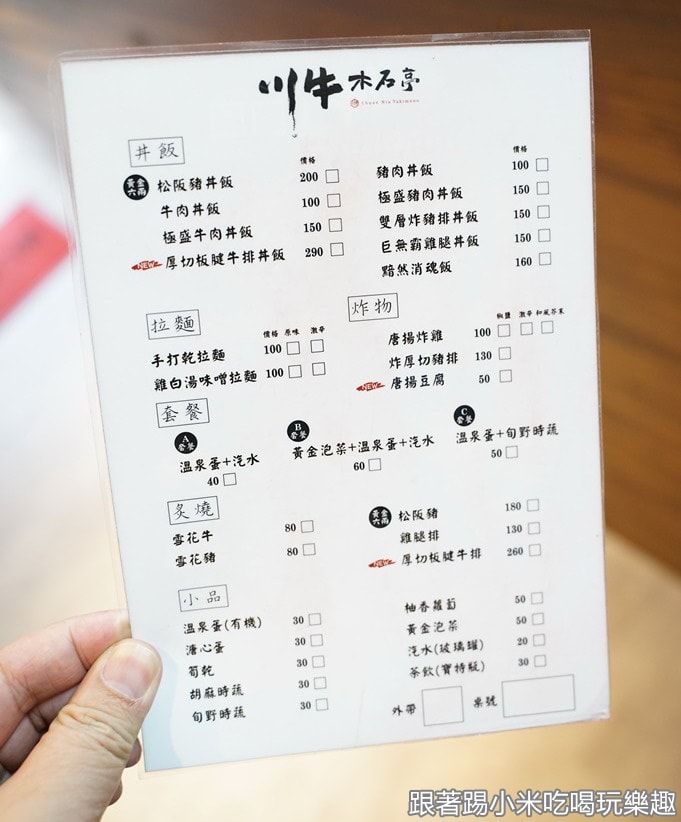 川牛 木石亭
Chuan Niu Yakiniku
丼飯
價格
黃金六兩 松阪豬丼飯 200
牛肉丼飯 100
極盛牛肉丼飯 150
NEW 厚切板腱牛排丼飯 290
價格
豬肉丼飯 100
極盛豬肉丼飯 150
雙層炸豬排丼飯 150
巨無霸雞腿丼飯 150
黯然消魂飯 160
拉麵
價格 原味 激辛
手打乾拉麵 100
雞白湯味噌拉麵 100
炸物
椒鹽 激辛 和風芥末
唐揚炸雞 100
炸厚切豬排 130
NEW 唐揚豆腐 50
套餐
A套餐
溫泉蛋+汽水
40
B套餐
黃金泡菜+溫泉蛋+汽水
60
C套餐
溫泉蛋+旬野時蔬
50
炙燒
雪花牛 80
雪花豬 80
黃金六兩 松阪豬 180
雞腿排 130
NEW 厚切板腱牛排 260
小品
溫泉蛋(有機) 30
溏心蛋 30
筍乾 30
胡麻時蔬 30
旬野時蔬 30
柚香蘿蔔 50
黃金泡菜 50
汽水(玻璃罐) 20
茶飲(寶特瓶) 30
外帶 桌號
跟著踢小米吃喝玩樂趣